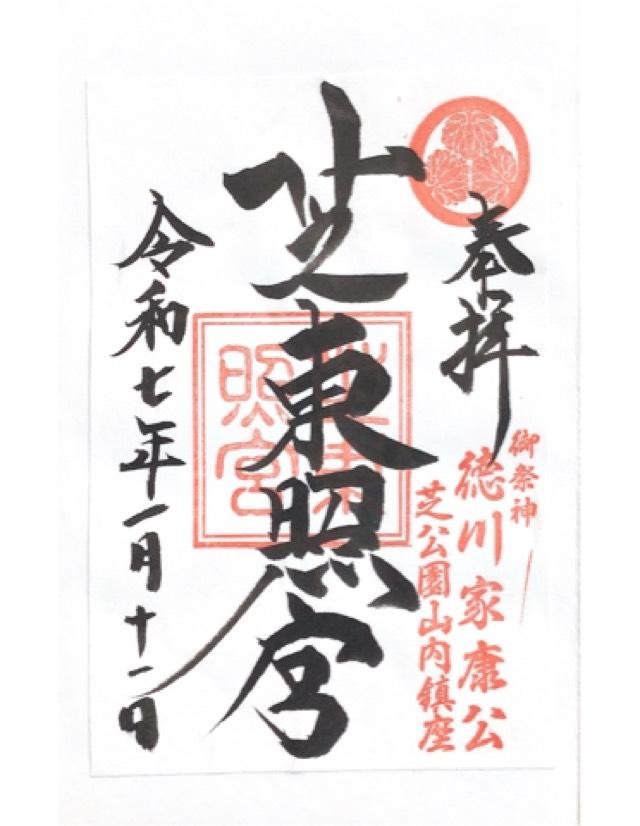 奉拝
御祭神
徳川家康公
芝公園山内鎮座
芝東照宮
芝東照宮
令和七年一月十一日